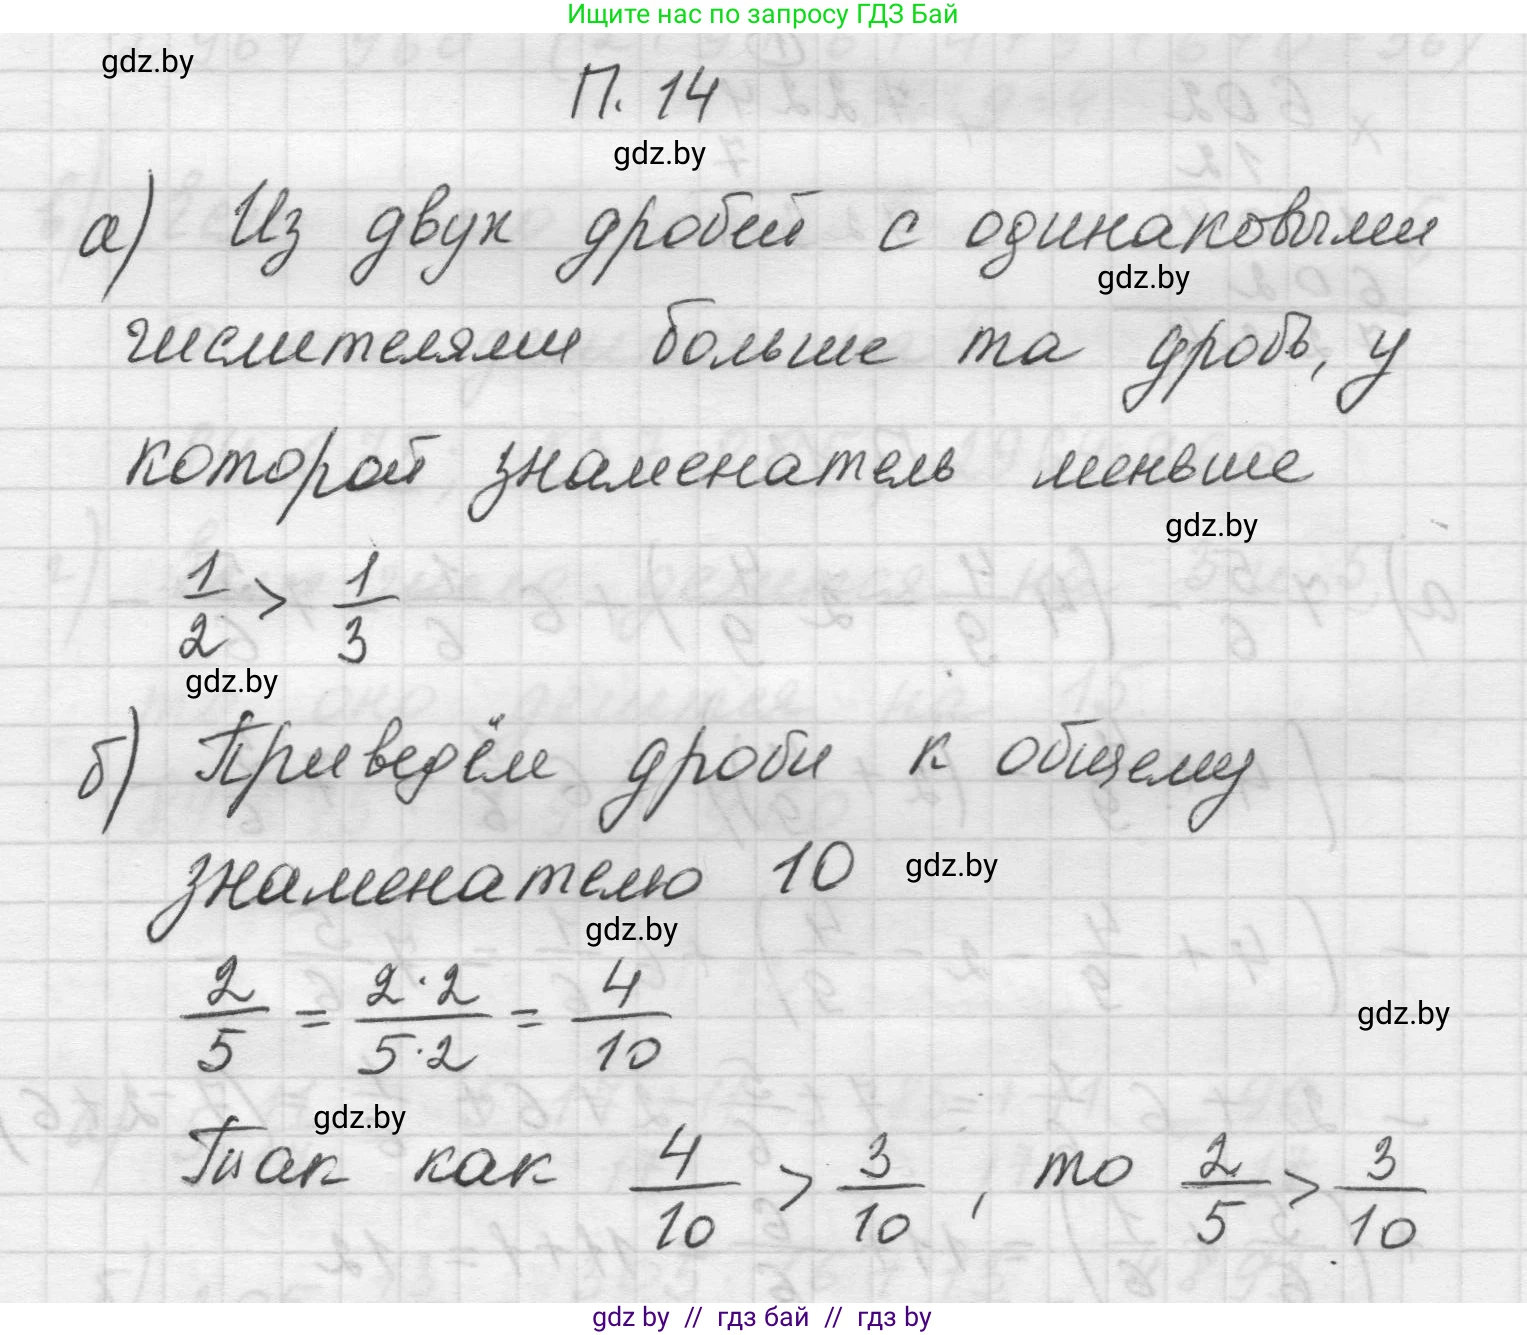 Ищите нас по запросу ГДЗ Бай
gdz.by
П. 14
gdz.by
а) Из двух дробей с одинаковыми
gdz.by
числителями больше та дробь, у
которой знаменатель меньше
gdz.by
1/2 > 1/3
gdz.by
б) Приведём дроби к общему
знаменателю 10
gdz.by
gdz.by
2/5 = 2·2/5·2 = 4/10
gdz.by
gdz.by
Так как 4/10 > 3/10, то 2/5 > 3/10
gdz by // гдз бай // гдз by